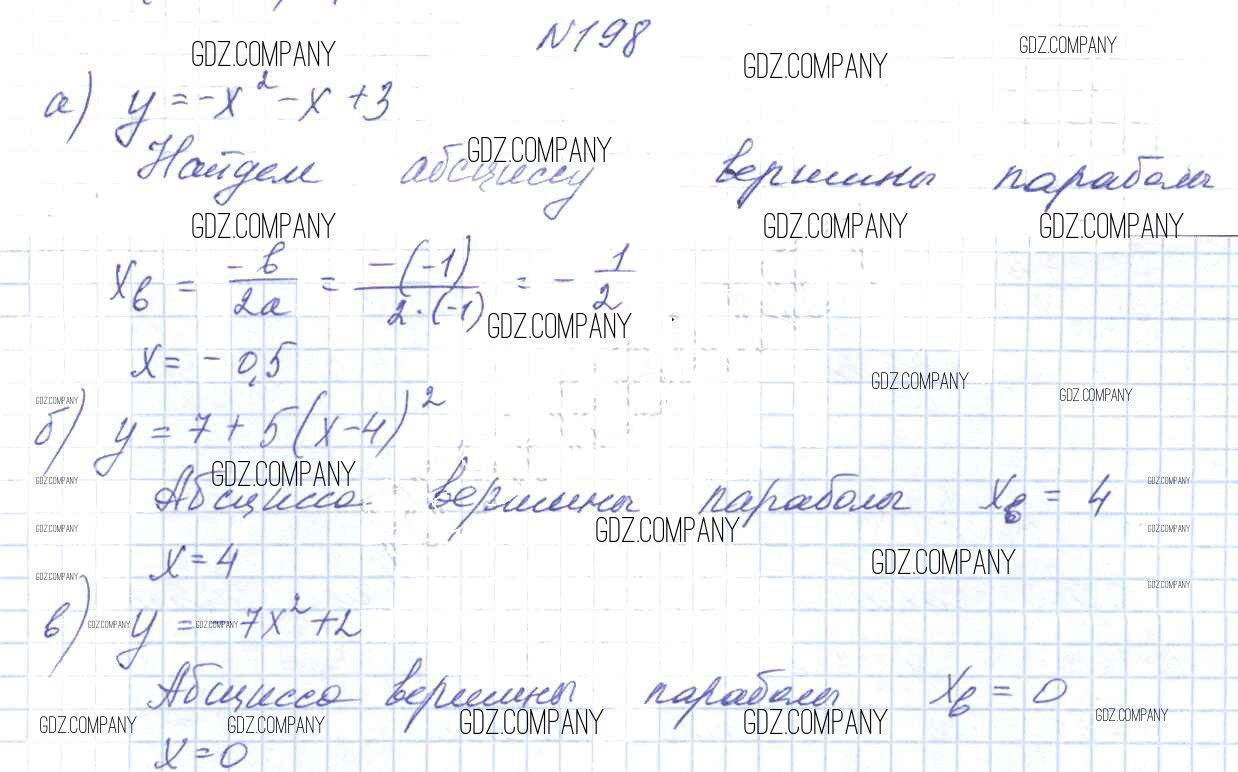 N198
GDZ.COMPANY GDZ.COMPANY GDZ.COMPANY
а) y = -x² - x + 3
GDZ.COMPANY
Найдем абсциссу вершины параболы
GDZ.COMPANY GDZ.COMPANY GDZ.COMPANY
xв = -b/2a = -(-1)/2·(-1) = - 1/2
GDZ.COMPANY
x = - 0,5
GDZ.COMPANY GDZ.COMPANY GDZ.COMPANY
б) y = 7 + 5(x-4)²
GDZ.COMPANY
Абсцисса вершины параболы xв = 4
GDZ.COMPANY GDZ.COMPANY
GDZ.COMPANY GDZ.COMPANY GDZ.COMPANY
x = 4
GDZ.COMPANY GDZ.COMPANY GDZ.COMPANY
в) y = -7x² + 2
GDZ.COMPANY GDZ.COMPANY
Абсцисса вершины параболы xв = 0
GDZ.COMPANY GDZ.COMPANY GDZ.COMPANY GDZ.COMPANY GDZ.COMPANY
x = 0